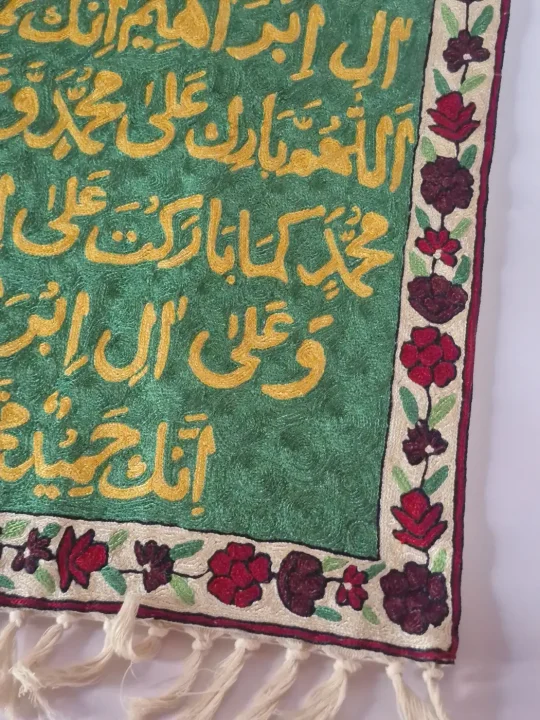 اٰلِ اِبْرَاهِيْمَ اِنَّكَ
اَللّٰهُمَّ بَارِكْ عَلىٰ مُحَمَّدٍ وَّ
مُحَمَّدٍ كَمَا بَارَكْتَ عَلىٰ
وَعَلىٰ اٰلِ اِبْرَ
اِنَّكَ حَمِيْدٌ